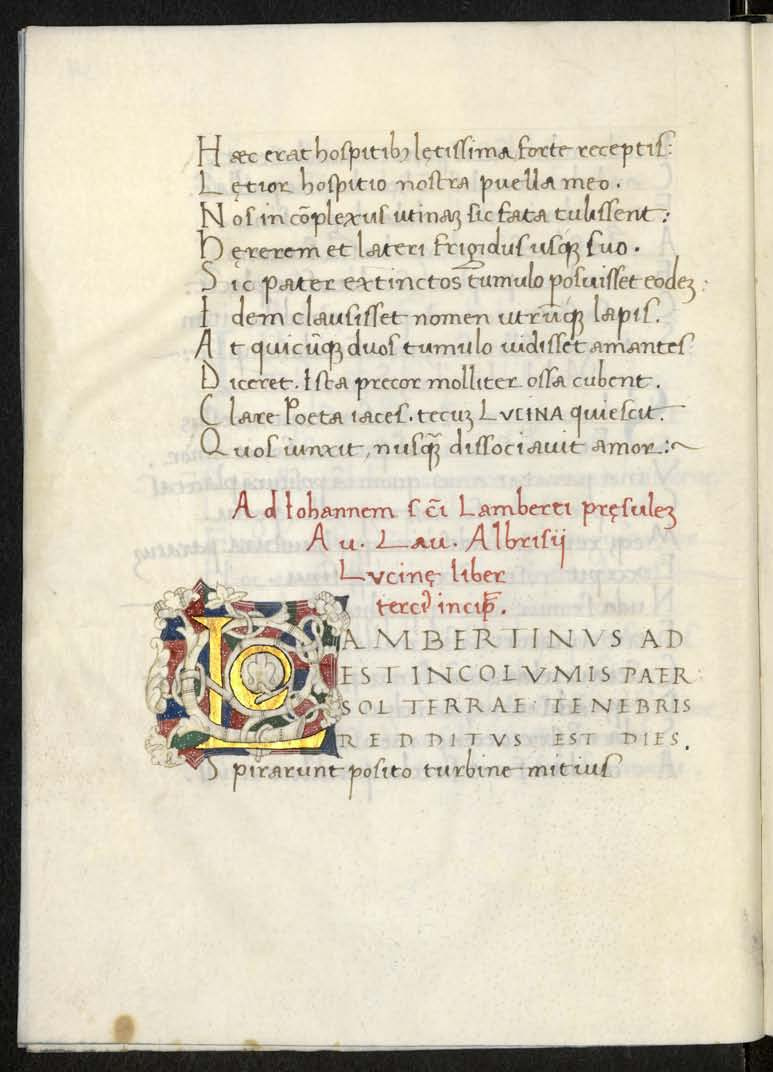 Hæc erat hospitibꝫ lętissima forte receptis:
Lętior hospitio nostra puella meo.
Nos in cõplexus utinaꝫ sic fata tulissent:
Hęrerem et lateri frigidus usqꝫ suo.
Sic pater extinctos tumulo posuisset eodeꝫ:
Idem clausisset nomen utrũqꝫ lapis.
At quicũqꝫ duos tumulo uidisset amantes
Diceret. Ista precor molliter ossa cubent.
Clare Poeta iaces. tecuꝫ LVCINA quiescit.
Quos iunxit, nusq̃ꝫ dissociauit amor:~
Ad Iohannem s cĩ Lamberti pręsuleꝫ
Au. Lau. Albrisij
Lvcinę liber
tercị incip̃.
LAMBERTINVS AD
EST INCOLVMIS PATER:
SOL TERRAE TENEBRIS
REDDITVS EST DIES.
Spirarunt posito turbine mitius